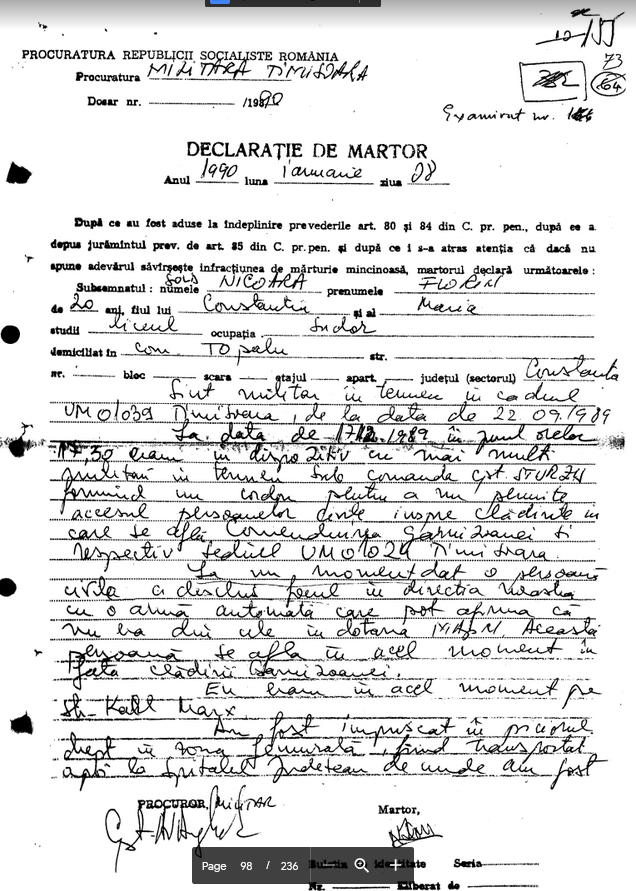 10/155
73
64
Examinat nr.
PROCURATURA REPUBLICII SOCIALISTE ROMÂNIA
Procuratura MILITARA TIMISOARA
Dosar nr. /1990
DECLARAŢIE DE MARTOR
Anul 1990 luna ianuarie ziua 08
După ce au fost aduse la îndeplinire prevederile art. 80 şi 84 din C. pr. pen., după ce a
depus jurămîntul prev. de art. 85 din C. pr. pen. şi după ce i s-a atras atenţia că dacă nu
spune adevărul săvîrşeşte infracţiunea de mărturie mincinoasă, martorul declară următoarele :
Subsemnatul : numele sold NICOARA prenumele FLORIN
de 20 ani, fiul lui Constantin şi al Maria
studii liceul ocupaţia sudor
domiciliat în com Topalu str.
nr. bloc scara etajul apart. judeţul (sectorul) Constanta
Sint militar in termen in cadrul
UM 01039 Timisoara, de la data de 22.09.1989
La data de 17.12.1989 în jurul orelor
17,30 eram in dispozitiv cu mai multi
militari in termen sub comanda cpt. STURZU
formind un cordon pentru a nu permite
accesul persoanelor civile inspre cladirile in
care se afla Comenduirea Garnizoanei si
respectiv sediul UM 01024 Timisoara.
La un moment dat o persoană
civila a deschis focul în directia noastra
cu o armă automată care pot afirma că
nu era din cele în dotarea MApN. Această
persoană se afla în acel moment în
fata cladirii Garnizoanei.
Eu eram in acel moment pe
str. Karl Marx.
Am fost împuscat în piciorul
drept in zona femurală, fiind transportat
apoi la Spitalul Judetean de unde am fost
PROCUROR, MILITAR
Martor,
Buletin de identitate Seria
Nr. Eliberat de
Page 98 / 236